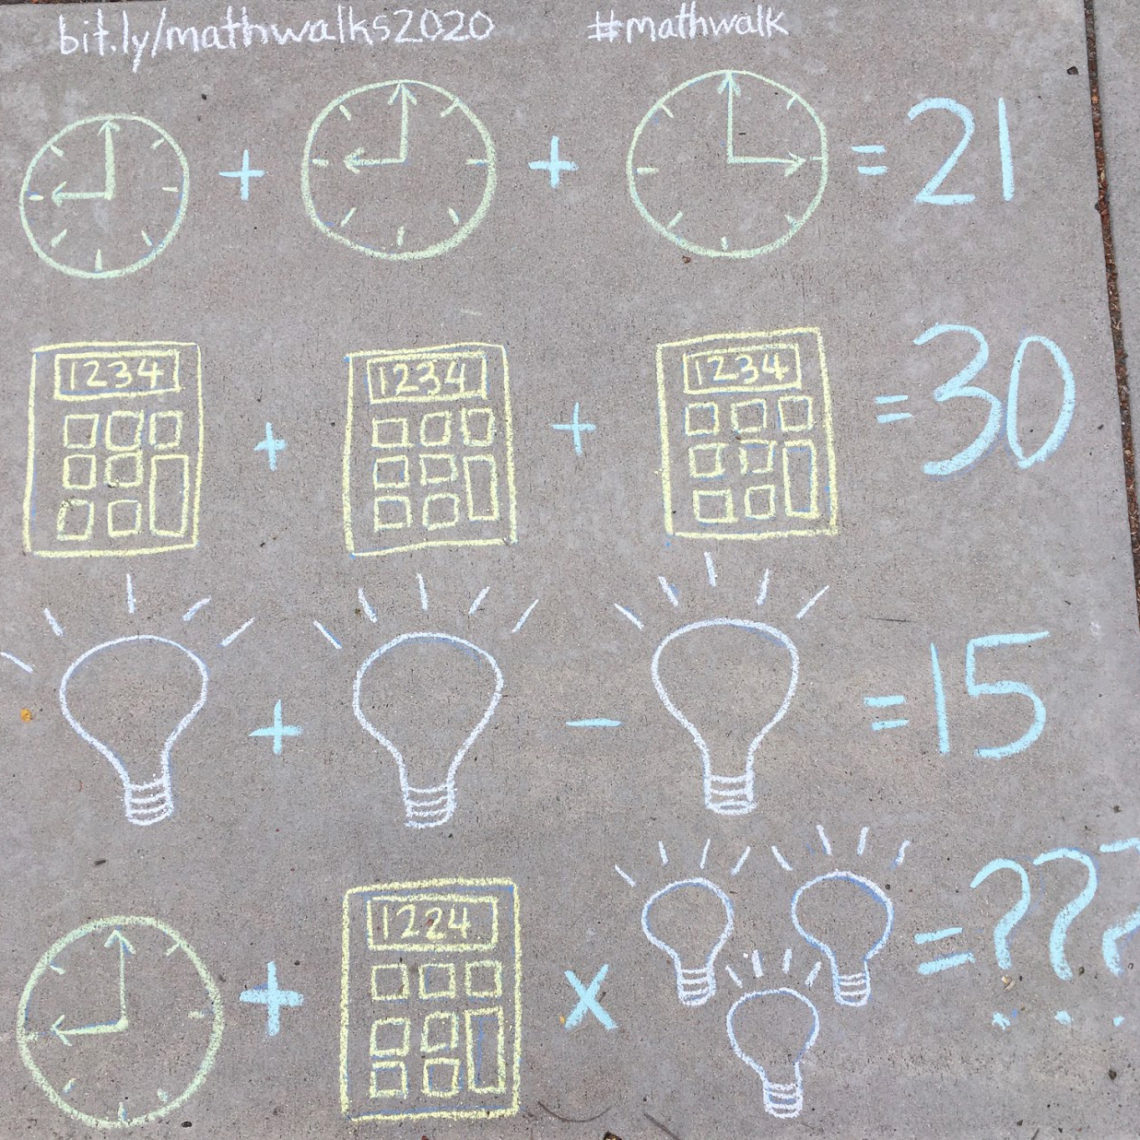 bit.ly/mathwalks2020 #mathwalk
+ + = 21
1234 + 1234 + 1234 = 30
+ - = 15
+ 1224 x = ???